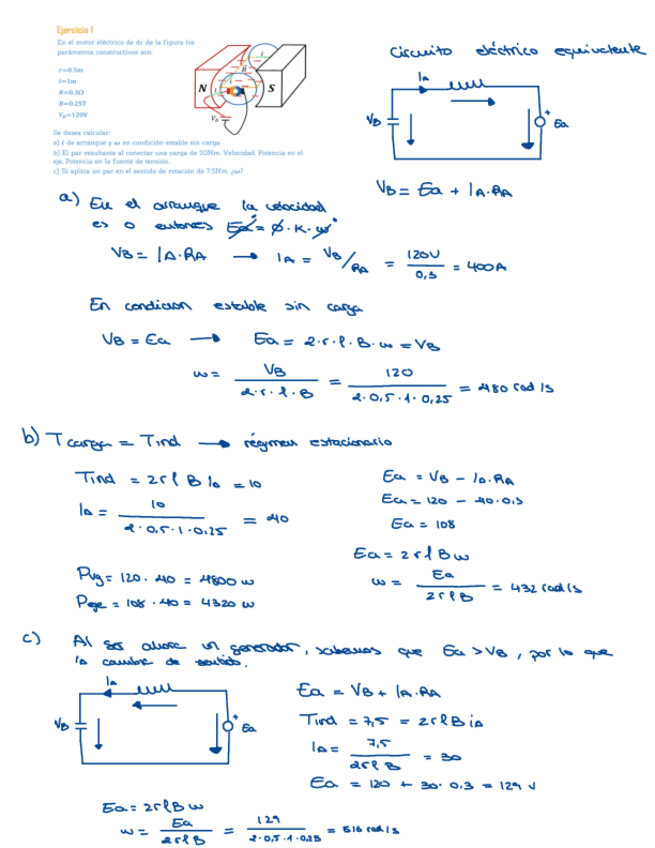 Ejercicio 1
En el motor eléctrico de dc de la figura los
parámetros constructivos son:
r=0.5m
l=1m
R=0.3Ω
B=0.25T
V_B=120V
N
S
V_B
Se desea calcular:
a) i de arranque y ω en condición estable sin carga.
b) El par resultante al conectar una carga de 10Nm. Velocidad, Potencia en el
eje, Potencia en la fuente de tensión.
c) Si aplica un par en el sentido de rotación de 7.5Nm. ¿ω?
circuito eléctrico equivalente
IA
VB
+
Ea
VB = Ea + IA·RA
a) En el arranque la velocidad
es 0 entonces Ea = Ø·K·ω
VB = IA·RA → IA = VB/RA = 120V/0,3 = 400A
En condicion estable sin carga
VB = Ea → Ea = 2·r·l·B·ω = VB
ω = VB/2·r·l·B = 120/2·0,5·1·0,25 = 480 rad/s
b) Tcarga = Tind → régimen estacionario
Tind = 2rlB Ia = 10
IA = 10/2·0,5·1·0,25 = 40
Ea = VB - IA·RA
Ea = 120 - 40·0,3
Ea = 108
Ea = 2rlBω
ω = Ea/2rlB = 432 rad/s
Pvg = 120·40 = 4800 w
Peje = 108·40 = 4320 w
c) Al ser ahora un generador, sabemos que Ea > VB, por lo que
Ia cambia de sentido.
IA
VB
+
Ea
Ea = VB + IA·RA
Tind = 7,5 = 2rlB ia
IA = 7,5/2rlB = 30
Ea = 120 + 30·0.3 = 129 V
Ea = 2rlBω
ω = Ea/2rlB = 129/2·0,5·1·0,25 = 516 rad/s